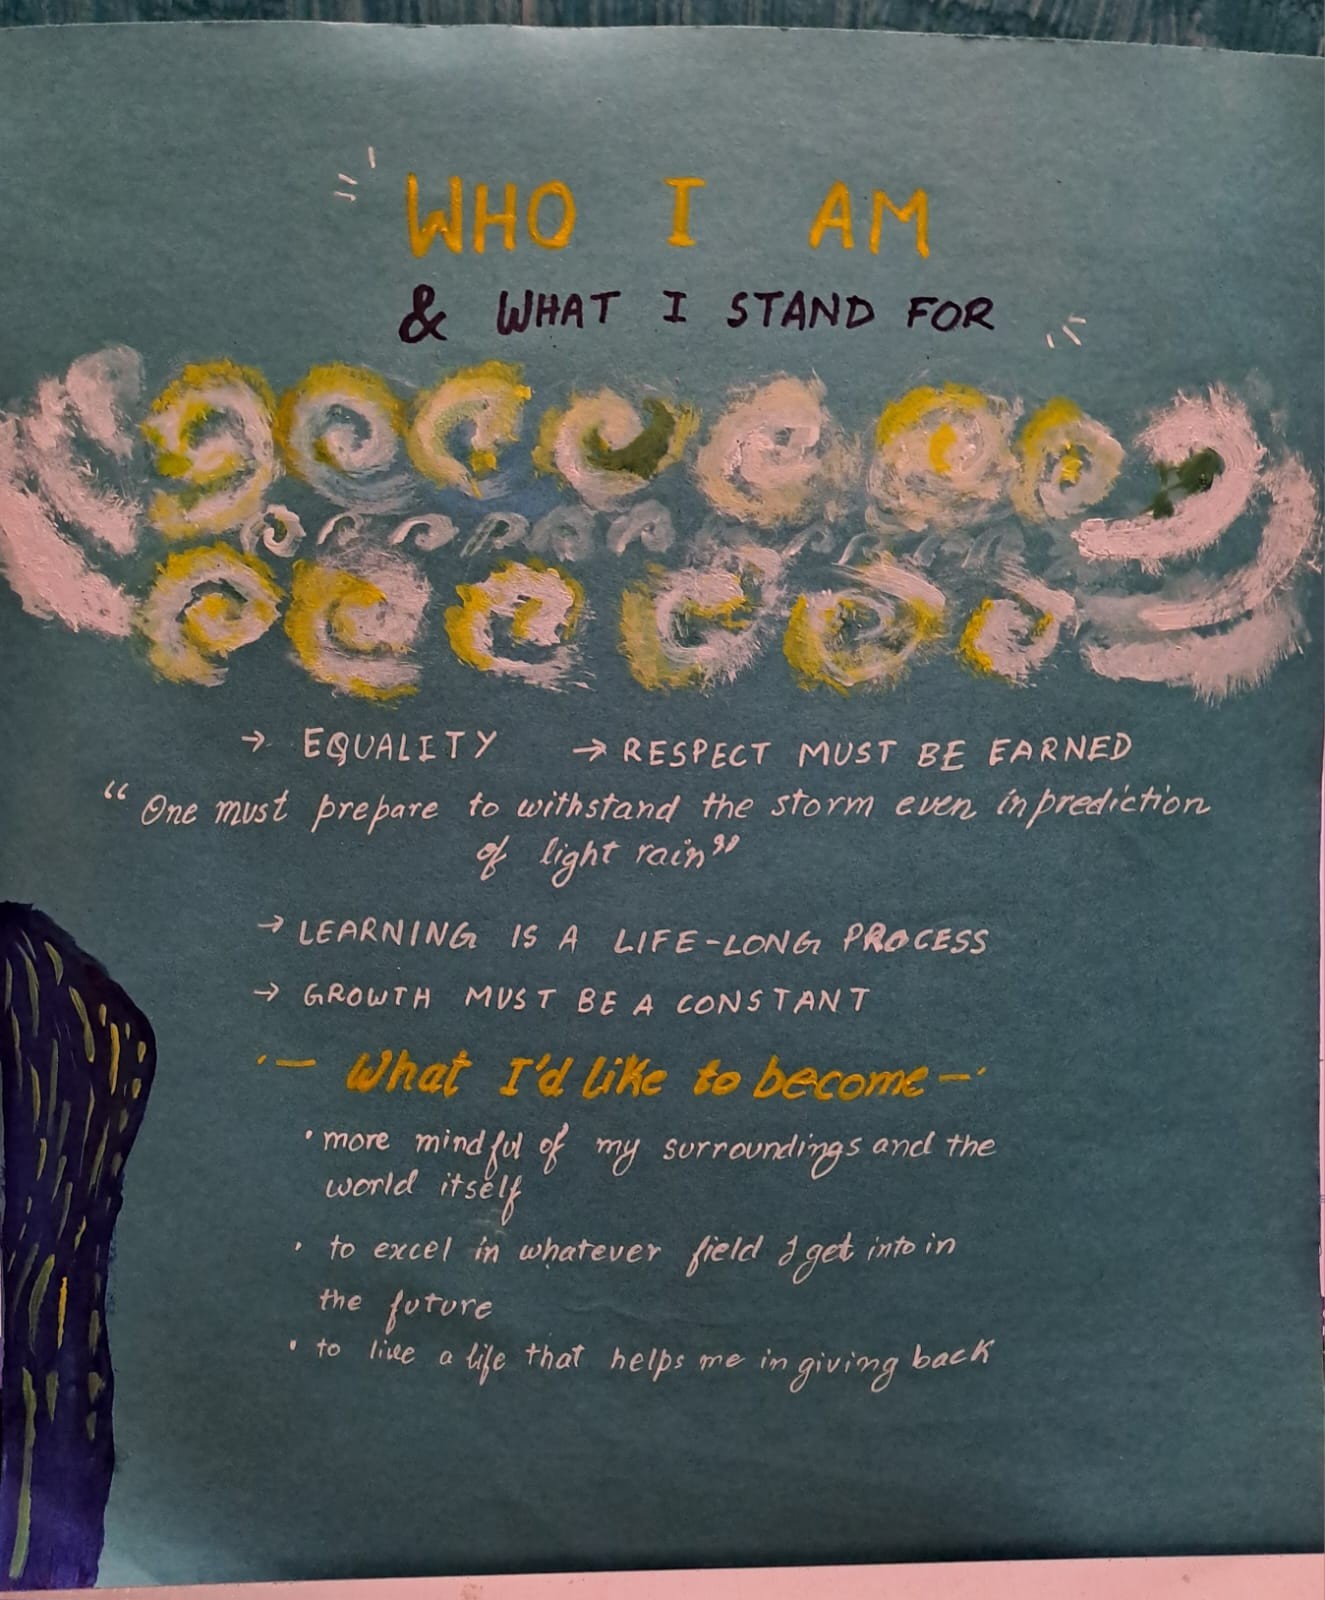 WHO I AM
& WHAT I STAND FOR
→ EQUALITY → RESPECT MUST BE EARNED
“One must prepare to withstand the storm even in prediction
of light rain”
→ LEARNING IS A LIFE-LONG PROCESS
→ GROWTH MUST BE A CONSTANT
'— What I'd like to become —'
• more mindful of my surroundings and the
world itself
• to excel in whatever field I get into in
the future
• to live a life that helps me in giving back